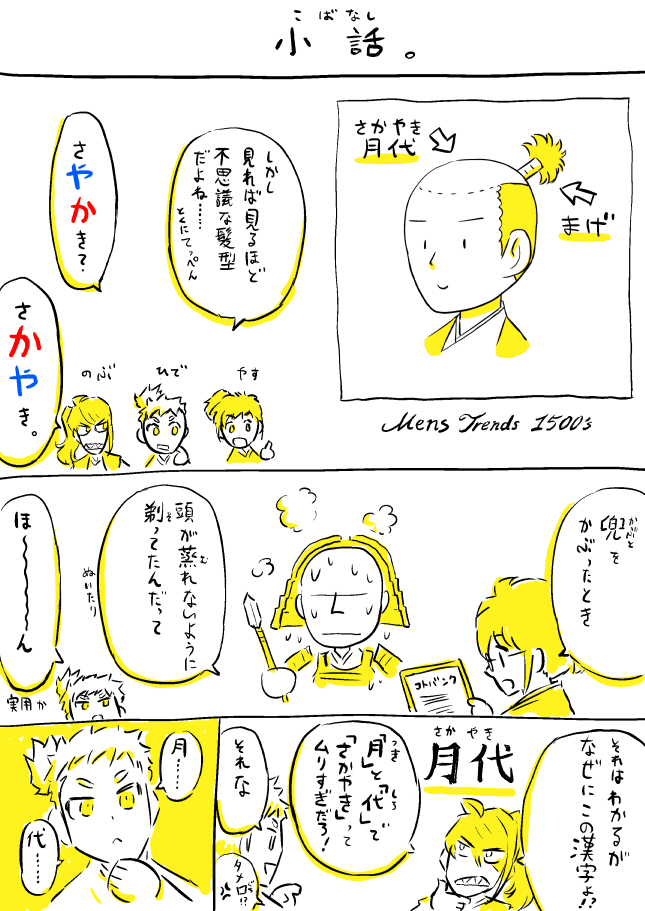 こばなし
小話。
さかやき
月代
まげ
Mens Trends 1500s
しかし
見れば見るほど
不思議な髪型
だよね……
とくにてっぺん
さやかき？
さかやき。
やす
ひで
のぶ
かぶと
兜を
かぶったとき
コトバンク
頭が蒸れないように
む
剃ってたんだって
そ
ぬいたり
ほ〜〜〜〜ん
実用か
それはわかるが
なぜにこの漢字よ!?
さかやき
月代
「月」と「代」で
つき
しろ
「さかやき」って
ムリすぎだろ！
それな
タメ口!?
月……
代……